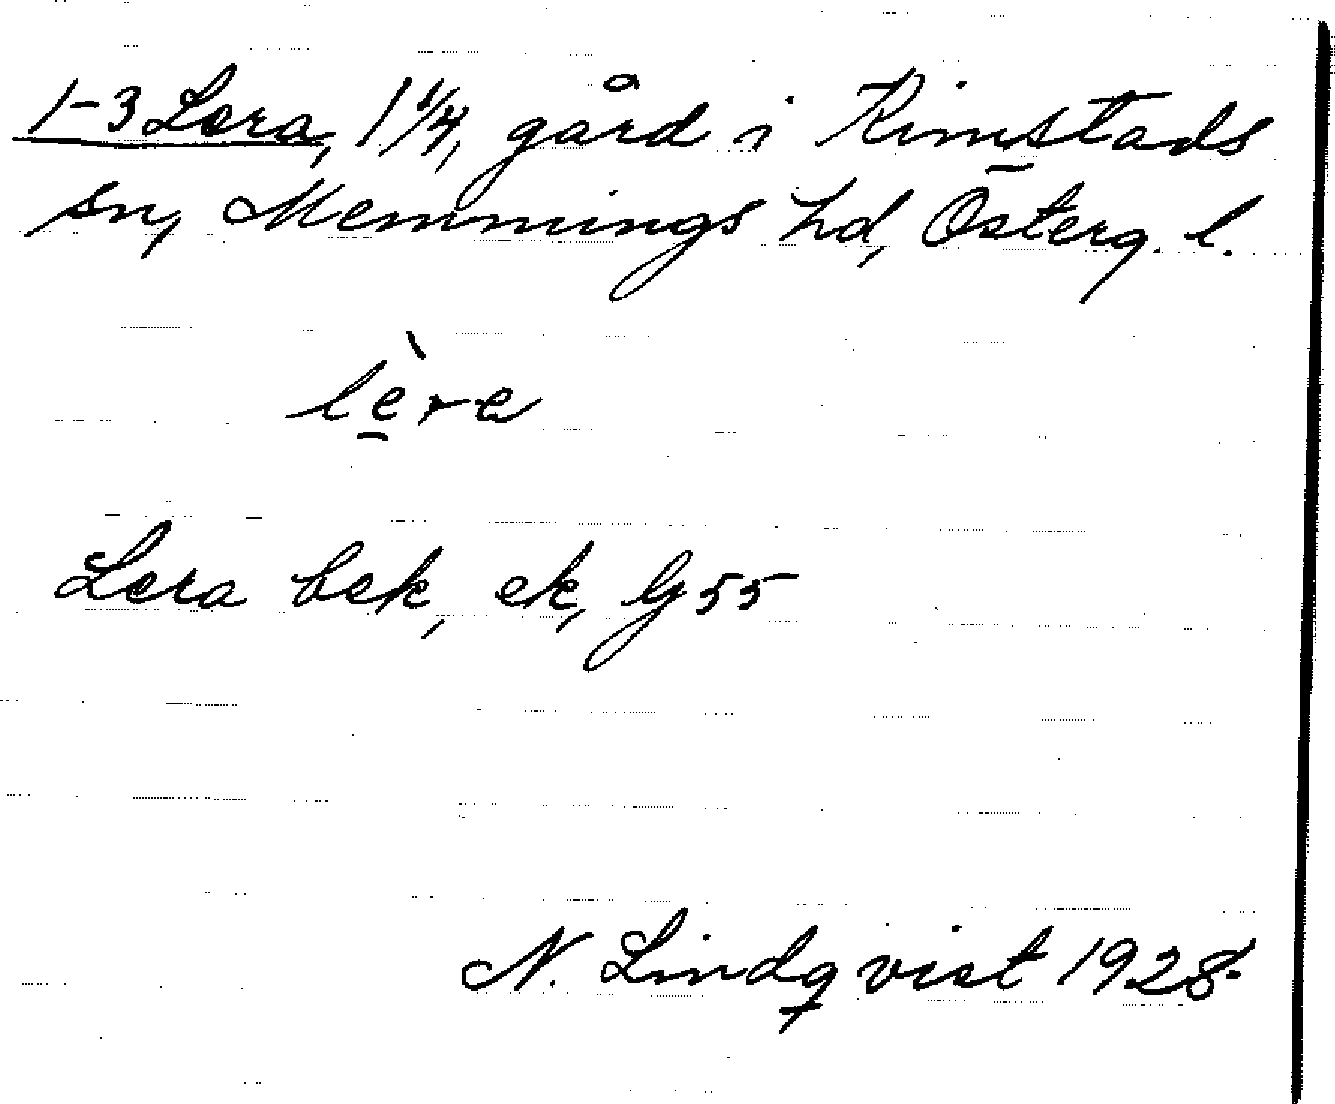 1-3 Lera, 1 1/4, gård i Kimstads
sn, Memmings hd, Österg. l.
lèra
Lera bek, ek, Gg 55
N. Lindqvist 1928.